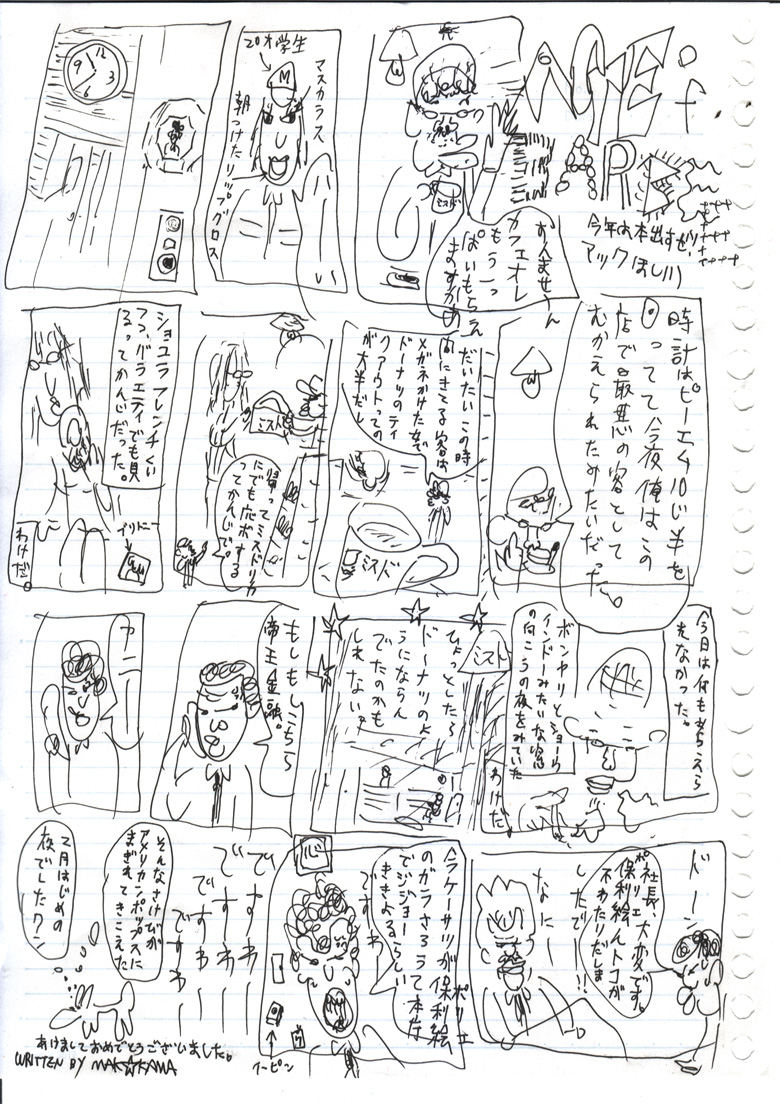 NITE of
ARE
今年は本出すぜ!!
マックほしい
すみません
カフェオレ
もういっ
ぱいもらえ
ますかあ
ミスド
20才学生
M
マスカラス
朝つけたリップグロス
12
9
3
6
時計はピーエム10じ半を
まわってて今夜僕はこの
店で最悪の客として
むかえられたみたいだった。
だいたいこの時
間にきてる客は
メガネかけた女で
ドーナツのティ
クアウトっての
が大半だし
ミスド
ミスド
帰ってミスドリカ
にでも応ボする
ってかんじで。
ショコラフレンチくい
つつ、バラエティでも見
るってかんじだった。
わけだ。
今日は何も考えら
れなかった。
ボンヤリとショウ
インドーみたいな窓
の向こうの夜をみていた
わけだ
ミスド
ひょっとしたら
ドーナツのよ
うにならん
でたのかも
しれない?
もしもしこちら
帝王金融。
ナニー
ドーン
社長、大変です。
保利絵んトコが
ポリエ
不わたりだしま
したでー!!
なにー
今ラケーサツが保利絵
ポリエ
のガラさろうて本庁
でジジョー
ききよるらしい
ですわ
心
イーピン
ですわー
ですわー
ですわー
ですわー
そんなさけびが
アメリカンポップスに
まぎれてきこえた
2月はじめの
夜でしたワン
あけましておめでとうございました。
WRITTEN BY MAK☆KAMA